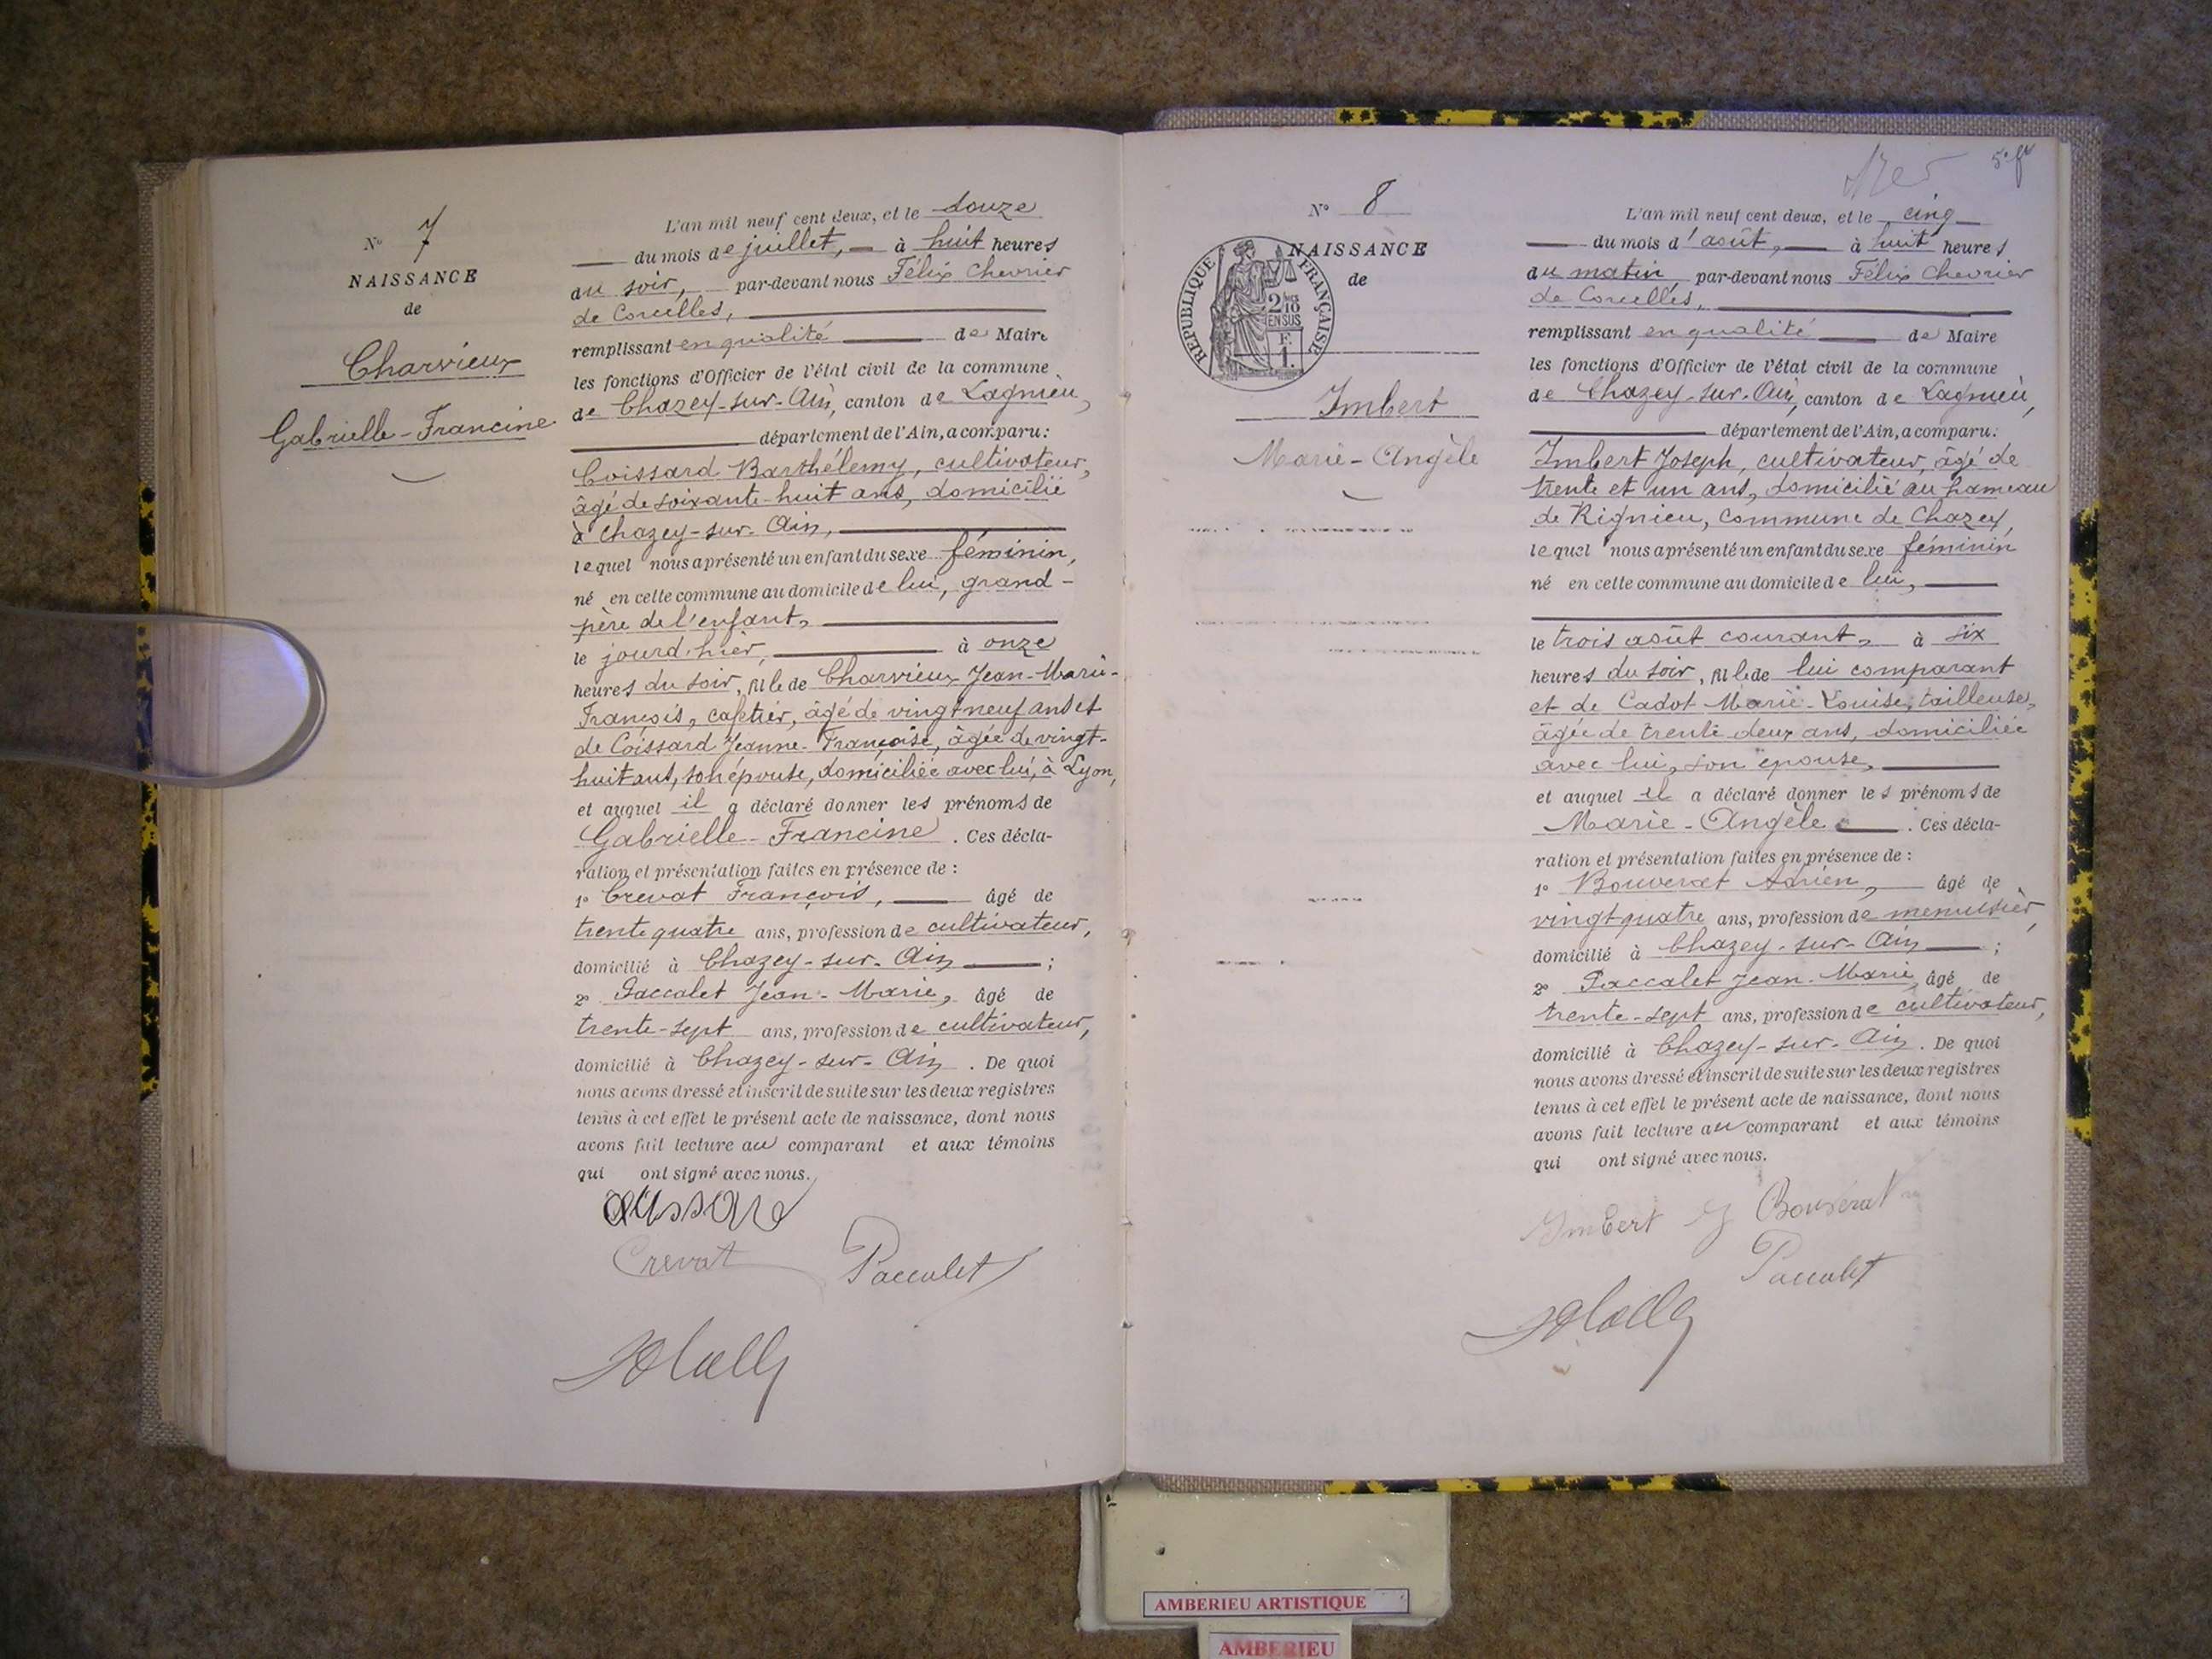 N° 7
NAISSANCE
de
Charvieux
Gabrielle-Francine
L'an mil neuf cent deux, et le douze
du mois de juillet, à huit heures
du soir, par-devant nous Félix Chevrier
de Corcelles,
remplissant en qualité de Maire
les fonctions d'Officier de l'état civil de la commune
de Chazey-sur-Ain, canton de Lagnieu,
département de l'Ain, a comparu:
Coissard Barthélemy, cultivateur,
âgé de soixante-huit ans, domicilié
à Chazey-sur-Ain,
lequel nous a présenté un enfant du sexe féminin,
né en cette commune au domicile de lui, grand-
père de l'enfant,
le jourd'hier, à onze
heures du soir, fille de Charvieux Jean-Marie-
François, cafetier, âgé de vingt neuf ans et
de Coissard Jeanne-Françoise, âgée de vingt-
huit ans, son épouse, domiciliée avec lui, à Lyon,
et auquel il a déclaré donner les prénoms de
Gabrielle-Francine. Ces décla-
ration et présentation faites en présence de :
1° Crevat François, âgé de
trente quatre ans, profession de cultivateur,
domicilié à Chazey-sur-Ain ;
2° Paccalet Jean-Marie, âgé de
trente-sept ans, profession de cultivateur,
domicilié à Chazey-sur-Ain. De quoi
nous avons dressé et inscrit de suite sur les deux registres
tenus à cet effet le présent acte de naissance, dont nous
avons fait lecture au comparant et aux témoins
qui ont signé avec nous.
Crevat Paccalet
5e ft
N° 8
NAISSANCE
de
RÉPUBLIQUE FRANÇAISE
2/10 EN SUS
F. 1.
Imbert
Marie-Angèle
L'an mil neuf cent deux, et le cinq
du mois d'août, à huit heures
du matin, par-devant nous Félix Chevrier
de Corcelles,
remplissant en qualité de Maire
les fonctions d'Officier de l'état civil de la commune
de Chazey-sur-Ain, canton de Lagnieu,
département de l'Ain, a comparu:
Imbert Joseph, cultivateur, âgé de
trente et un ans, domicilié au hameau
de Rignieu, commune de Chazey,
lequel nous a présenté un enfant du sexe féminin
né en cette commune au domicile de lui,
le trois août courant, à six
heures du soir, fille de lui comparant
et de Cadot Marie-Louise, tailleuse,
âgée de trente deux ans, domiciliée
avec lui, son épouse,
et auquel il a déclaré donner les prénoms de
Marie-Angèle. Ces décla-
ration et présentation faites en présence de :
1° Bouverat Adrien, âgé de
vingt quatre ans, profession de menuisier,
domicilié à Chazey-sur-Ain ;
2° Paccalet Jean-Marie, âgé de
trente-sept ans, profession de cultivateur,
domicilié à Chazey-sur-Ain. De quoi
nous avons dressé et inscrit de suite sur les deux registres
tenus à cet effet le présent acte de naissance, dont nous
avons fait lecture au comparant et aux témoins
qui ont signé avec nous.
Imbert Bouverat
Paccalet
AMBERIEU ARTISTIQUE
AMBERIEU